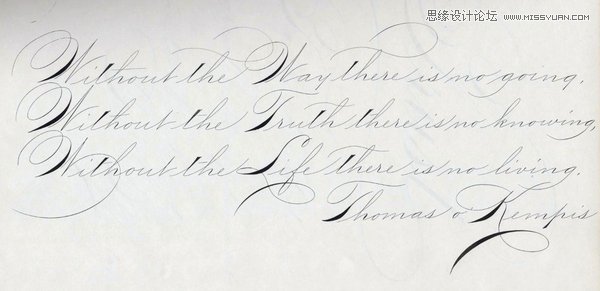 思缘设计论坛 WWW.MISSYUAN.COM
Without the Way there is no going,
Without the Truth there is no knowing,
Without the Life there is no living.
Thomas a' Kempis